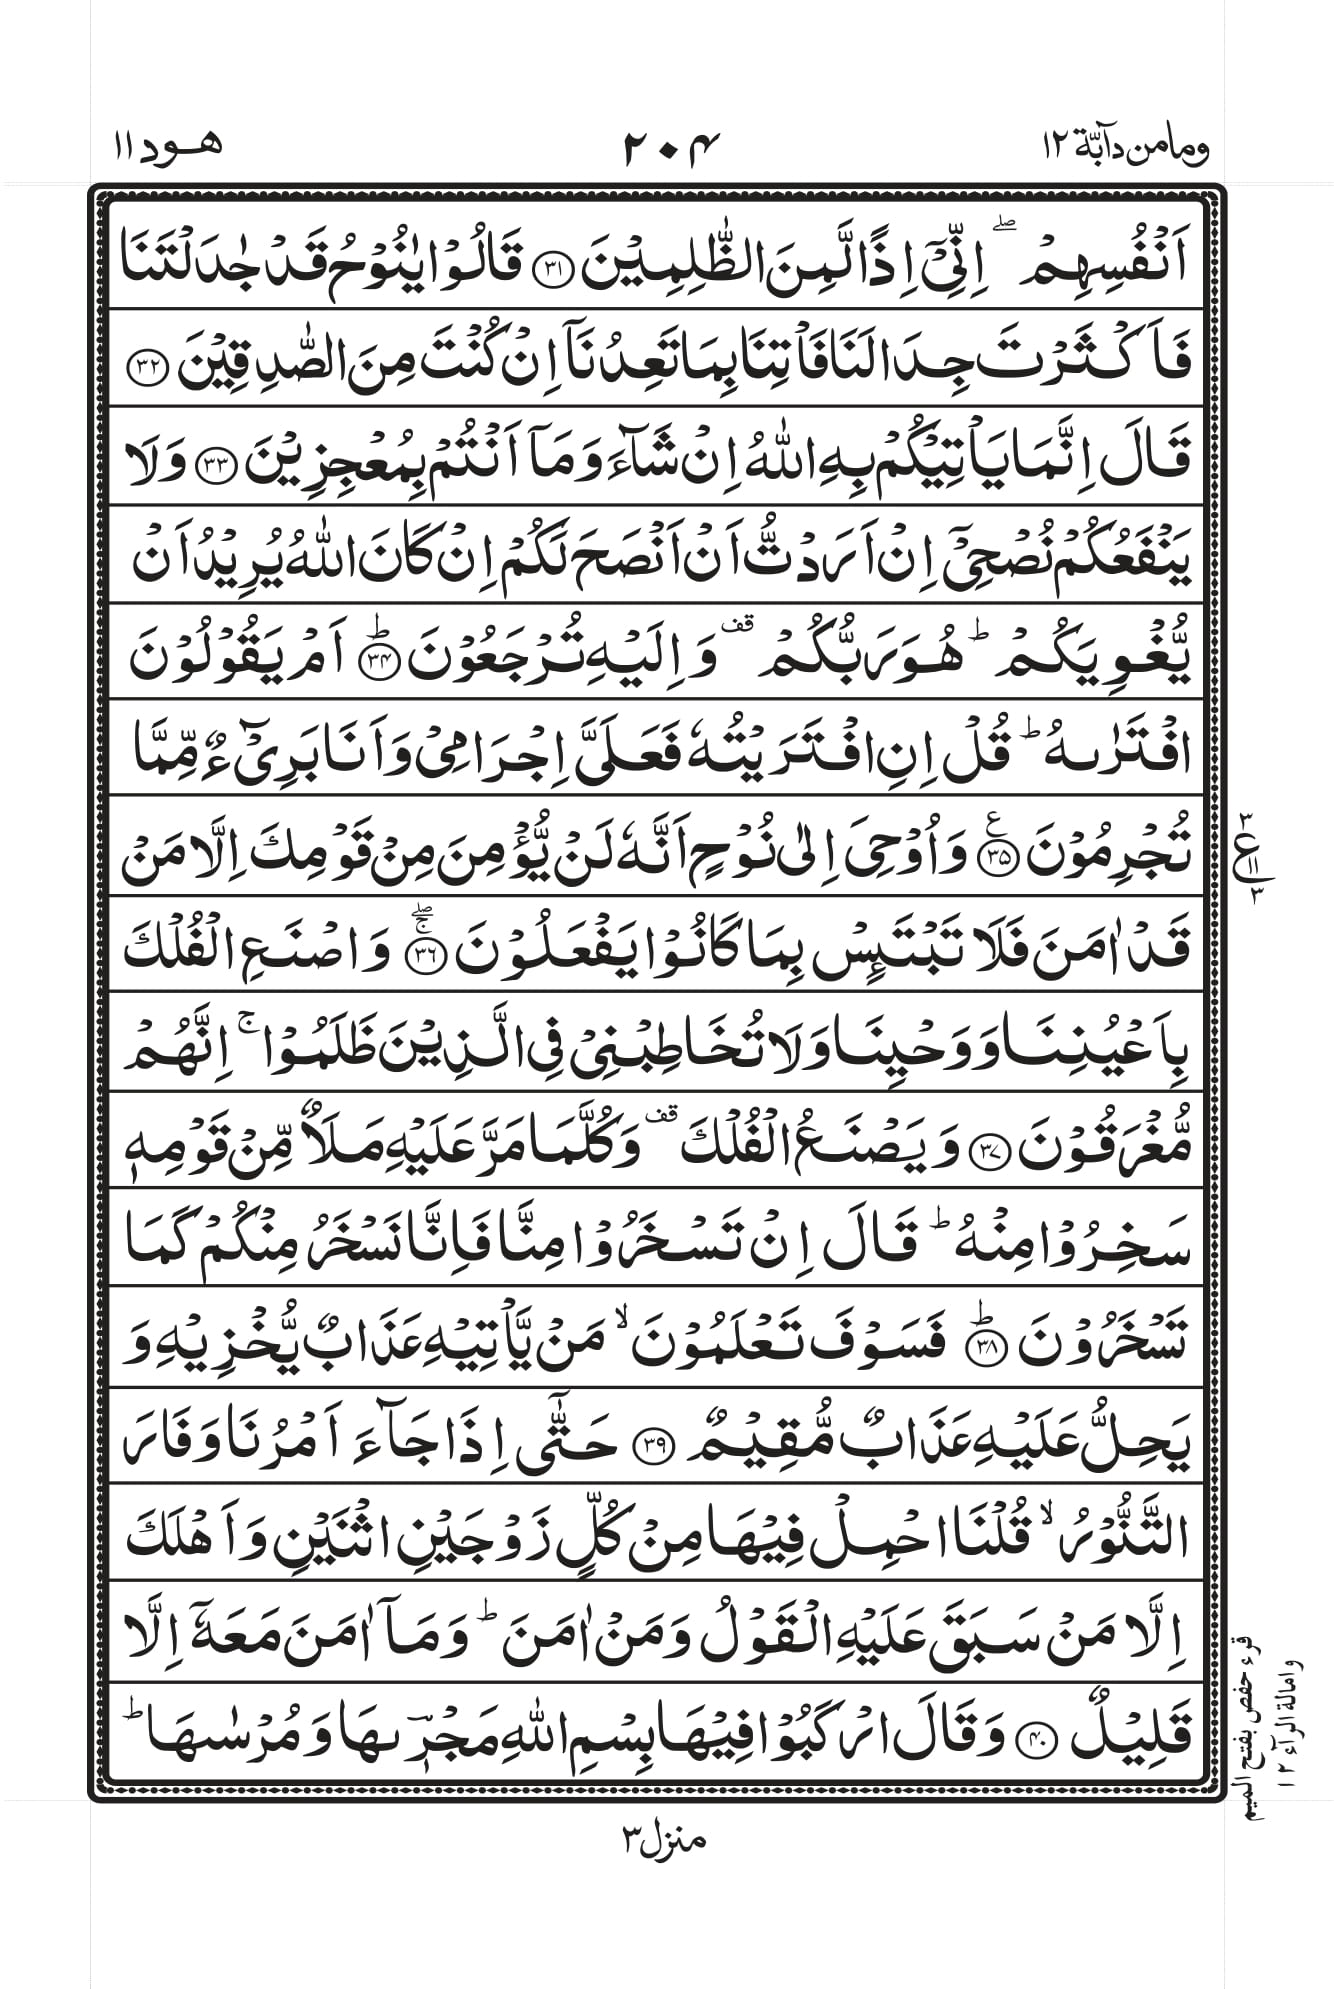 ومامن دآبّة ١٢
٢٠٤
هود ١١
اَنْفُسِهِمْ ۖۚ اِنِّيْۤ اِذًا لَّمِنَ الظّٰلِمِيْنَ ﴿٣١﴾ قَالُوْا يٰنُوْحُ قَدْ جٰدَلْتَنَا
فَاَكْثَرْتَ جِدَالَنَا فَاْتِنَا بِمَا تَعِدُنَاۤ اِنْ كُنْتَ مِنَ الصّٰدِقِيْنَ ﴿٣٢﴾
قَالَ اِنَّمَا يَاْتِيْكُمْ بِهِ اللّٰهُ اِنْ شَآءَ وَمَاۤ اَنْتُمْ بِمُعْجِزِيْنَ ﴿٣٣﴾ وَلَا
يَنْفَعُكُمْ نُصْحِيْۤ اِنْ اَرَدْتُّ اَنْ اَنْصَحَ لَكُمْ اِنْ كَانَ اللّٰهُ يُرِيْدُ اَنْ
يُّغْوِيَكُمْ ؕ هُوَ رَبُّكُمْ قف وَاِلَيْهِ تُرْجَعُوْنَ ؕ﴿٣٤﴾ اَمْ يَقُوْلُوْنَ
افْتَرٰىهُ ؕ قُلْ اِنِ افْتَرَيْتُهٗ فَعَلَيَّ اِجْرَامِيْ وَاَنَا بَرِيْٓءٌ مِّمَّا
تُجْرِمُوْنَ ﴿٣٥﴾ع وَاُوْحِيَ اِلٰى نُوْحٍ اَنَّهٗ لَنْ يُّؤْمِنَ مِنْ قَوْمِكَ اِلَّا مَنْ
قَدْ اٰمَنَ فَلَا تَبْتَئِسْ بِمَا كَانُوْا يَفْعَلُوْنَ ۖۚ﴿٣٦﴾ وَاصْنَعِ الْفُلْكَ
بِاَعْيُنِنَا وَوَحْيِنَا وَلَا تُخَاطِبْنِيْ فِي الَّذِيْنَ ظَلَمُوْا ۚ اِنَّهُمْ
مُّغْرَقُوْنَ ﴿٣٧﴾ وَيَصْنَعُ الْفُلْكَ قف وَكُلَّمَا مَرَّ عَلَيْهِ مَلَاٌ مِّنْ قَوْمِهٖ
سَخِرُوْا مِنْهُ ؕ قَالَ اِنْ تَسْخَرُوْا مِنَّا فَاِنَّا نَسْخَرُ مِنْكُمْ كَمَا
تَسْخَرُوْنَ ؕ﴿٣٨﴾ فَسَوْفَ تَعْلَمُوْنَ ۙ مَنْ يَّاْتِيْهِ عَذَابٌ يُّخْزِيْهِ وَ
يَحِلُّ عَلَيْهِ عَذَابٌ مُّقِيْمٌ ﴿٣٩﴾ حَتّٰۤى اِذَا جَآءَ اَمْرُنَا وَفَارَ
التَّنُّوْرُ ۙ قُلْنَا احْمِلْ فِيْهَا مِنْ كُلٍّ زَوْجَيْنِ اثْنَيْنِ وَاَهْلَكَ
اِلَّا مَنْ سَبَقَ عَلَيْهِ الْقَوْلُ وَمَنْ اٰمَنَ ؕ وَمَاۤ اٰمَنَ مَعَهٗۤ اِلَّا
قَلِيْلٌ ﴿٤٠﴾ وَقَالَ ارْكَبُوْا فِيْهَا بِسْمِ اللّٰهِ مَجْرٖىهَا وَمُرْسٰىهَا ؕ
٣
ع
١١
٣
قرء حفص بفتح الميم
وامالة الرآء ١٢
منزل ٣